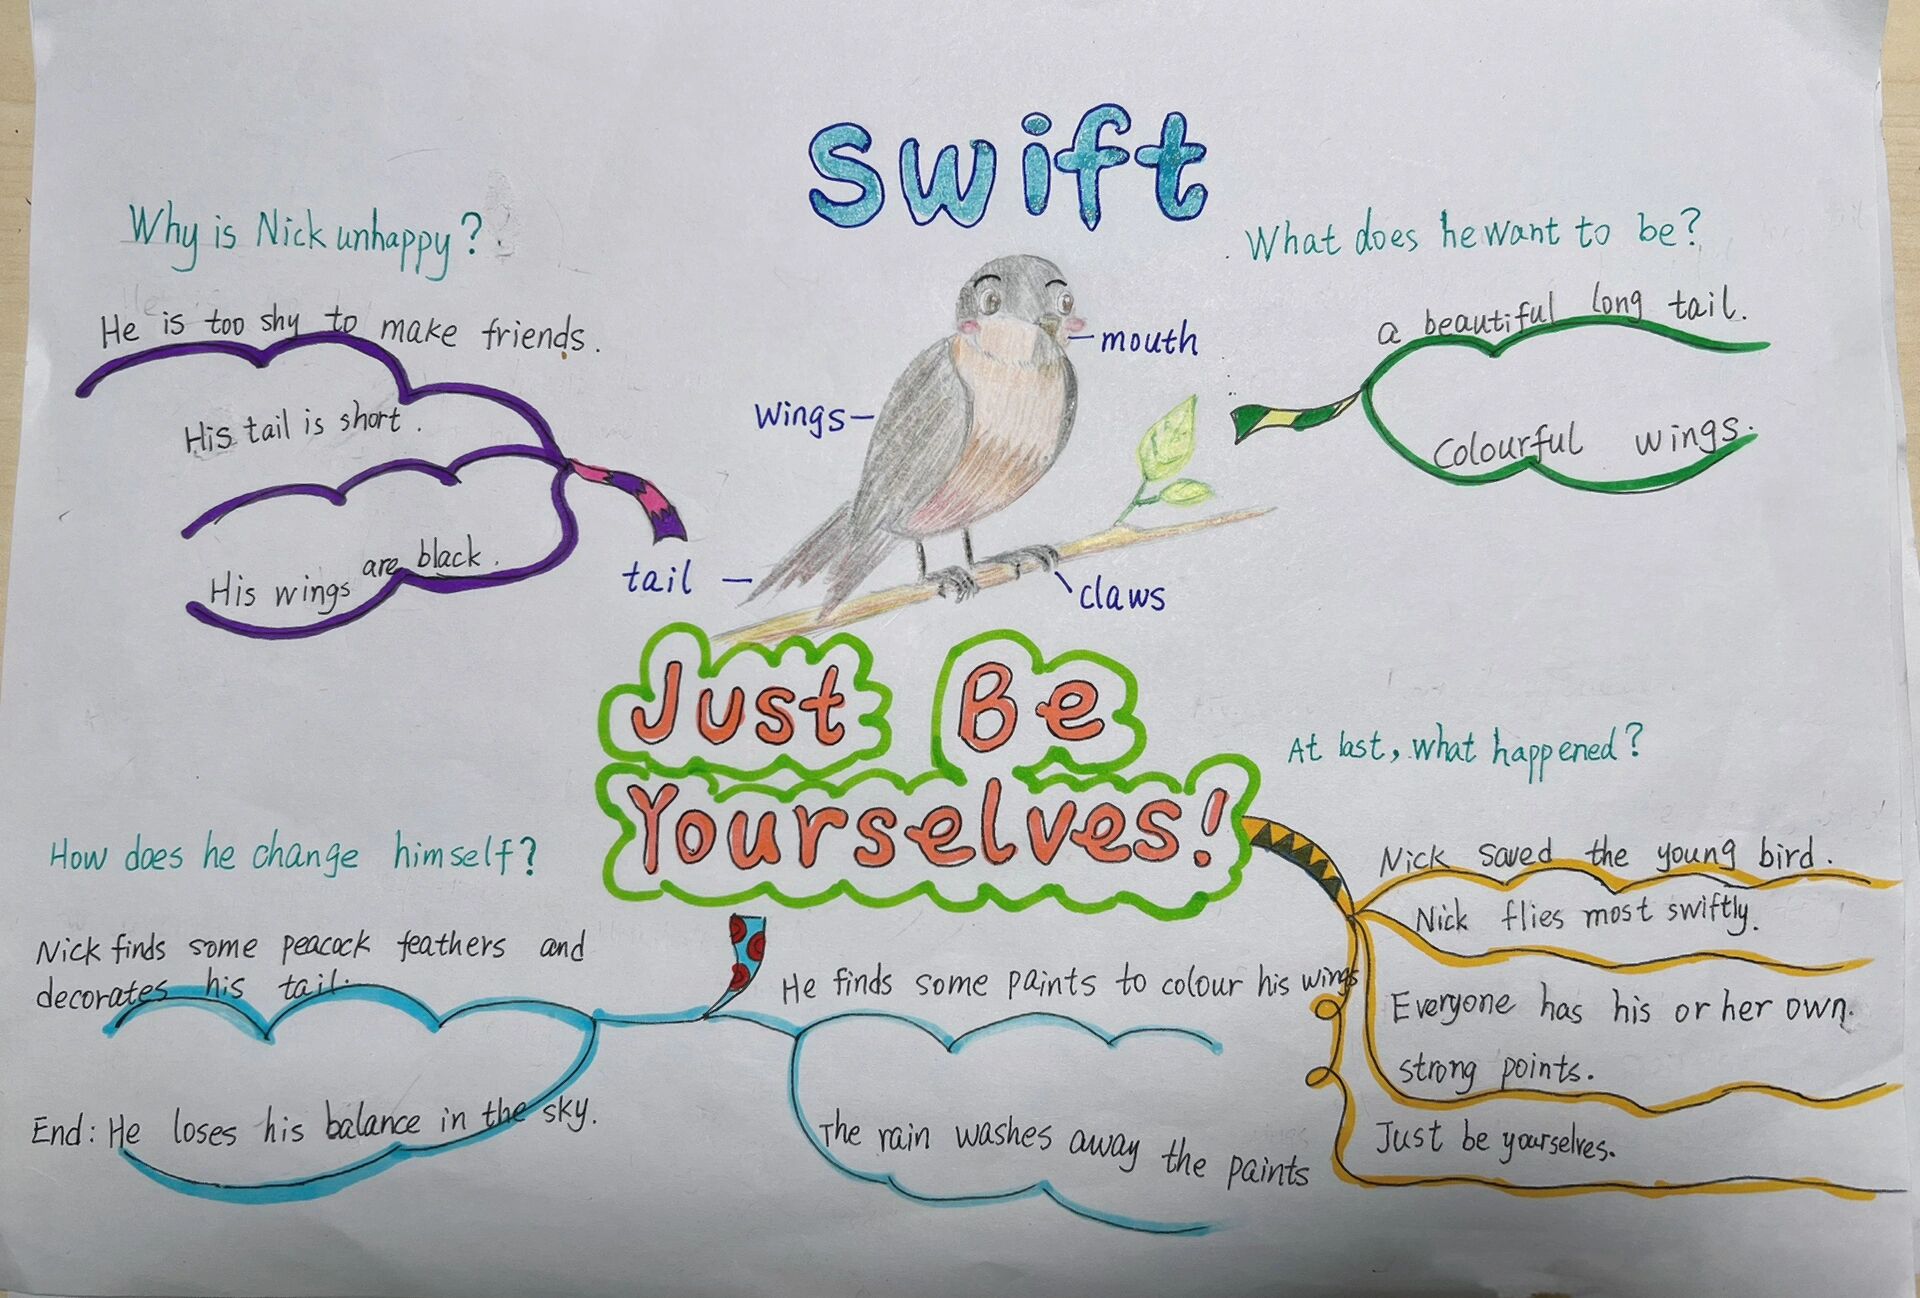 Swift
Why is Nick unhappy?
He is too shy to make friends.
His tail is short.
His wings are black.
What does he want to be?
a beautiful long tail.
Colourful wings.
mouth
Wings
tail
claws
Just Be
Yourselves!
How does he change himself?
Nick finds some peacock feathers and
decorates his tail.
End: He loses his balance in the sky.
He finds some paints to colour his wings
The rain washes away the paints
At last, what happened?
Nick saved the young bird.
Nick flies most swiftly.
Everyone has his or her own.
strong points.
Just be yourselves.